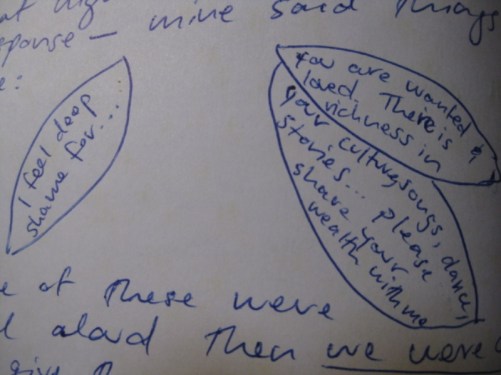 at
sponse – mine said Things
e:
I feel deep
shame for...
You are wanted &
loved. There is
richness in
your culture, songs, dance,
stories... please
share your
wealth with me
e of These were
d aloud Then we were
give